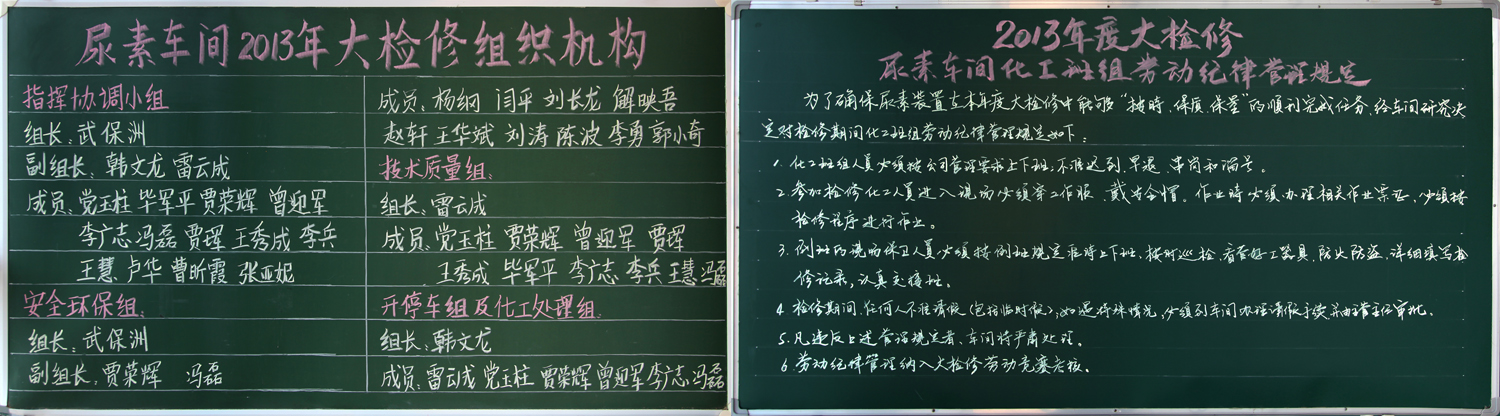 尿素车间2013年大检修组织机构
指挥协调小组
组长：武保洲
副组长：韩文龙 雷云成
成员：党玉柱 毕军平 贾荣辉 曾迎军
李广志 冯磊 贾珲 王秀成 李兵
王慧 卢华 曹昕霞 张亚妮
安全环保组：
组长：武保洲
副组长：贾荣辉 冯磊
成员：杨纲 闫平 刘长龙 解映吾
赵轩 王华斌 刘涛 陈波 李勇 郭小奇
技术质量组：
组长：雷云成
成员：党玉柱 贾荣辉 曾迎军 贾珲
王秀成 毕军平 李广志 李兵 王慧 冯磊
开停车组及化工处理组：
组长：韩文龙
成员：雷云成 党玉柱 贾荣辉 曾迎军 李广志 冯磊
2013年度大检修
尿素车间化工班组劳动纪律管理规定
为了确保尿素装置在本年度大检修中能够“按时、保质、保量”的顺利完成任务，经车间研究决
定对检修期间化工班组劳动纪律管理规定如下：
1、化工班组人员必须按公司管理要求上下班；不准迟到、早退、串岗和漏号。
2、参加检修化工人员进入现场必须穿工作服、戴安全帽。作业时必须办理相关作业票证，必须按
检修程序进行作业。
3、倒班的现场保卫人员必须按倒班规定准时上下班，按时巡检，看管好工器具，防火防盗，详细填写检
修记录，认真交接班。
4、检修期间，任何人不准请假（包括临时假），如遇特殊情况，必须到车间办理请假手续并由主任审批。
5、凡违反上述管理规定者，车间将严肃处理。
6、劳动纪律管理纳入大检修劳动竞赛考核。